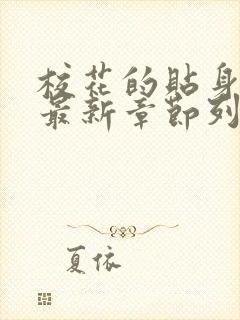 校花的贴身
最新章节列
夏依